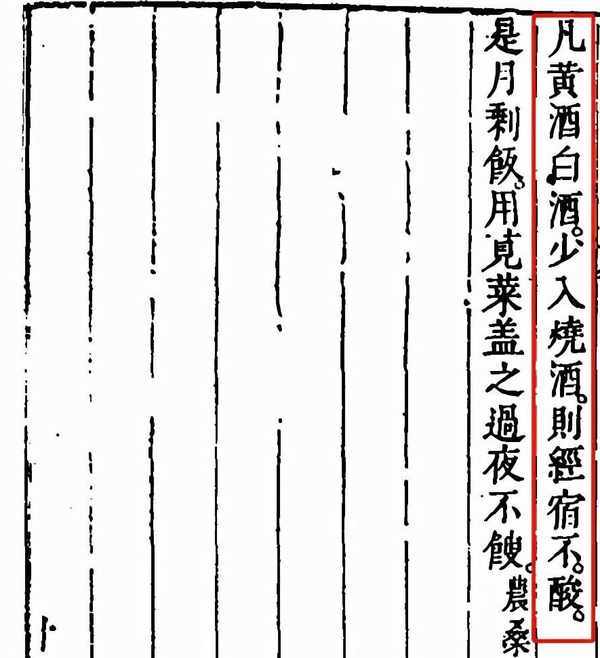 凡黃酒白酒。少入燒酒。則經宿不。酸。
是月剩飯。用莧菜盖之過夜不餿。農桑